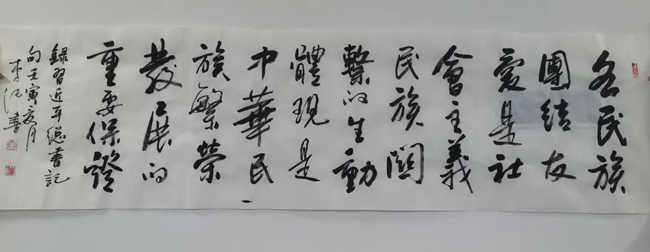 各民族
團結友
愛是社
會主義
民族關
繫的生動
體現是
中華民
族繁榮
發展的
重要保證
錄習近平總書記
句壬寅亥月
李 書